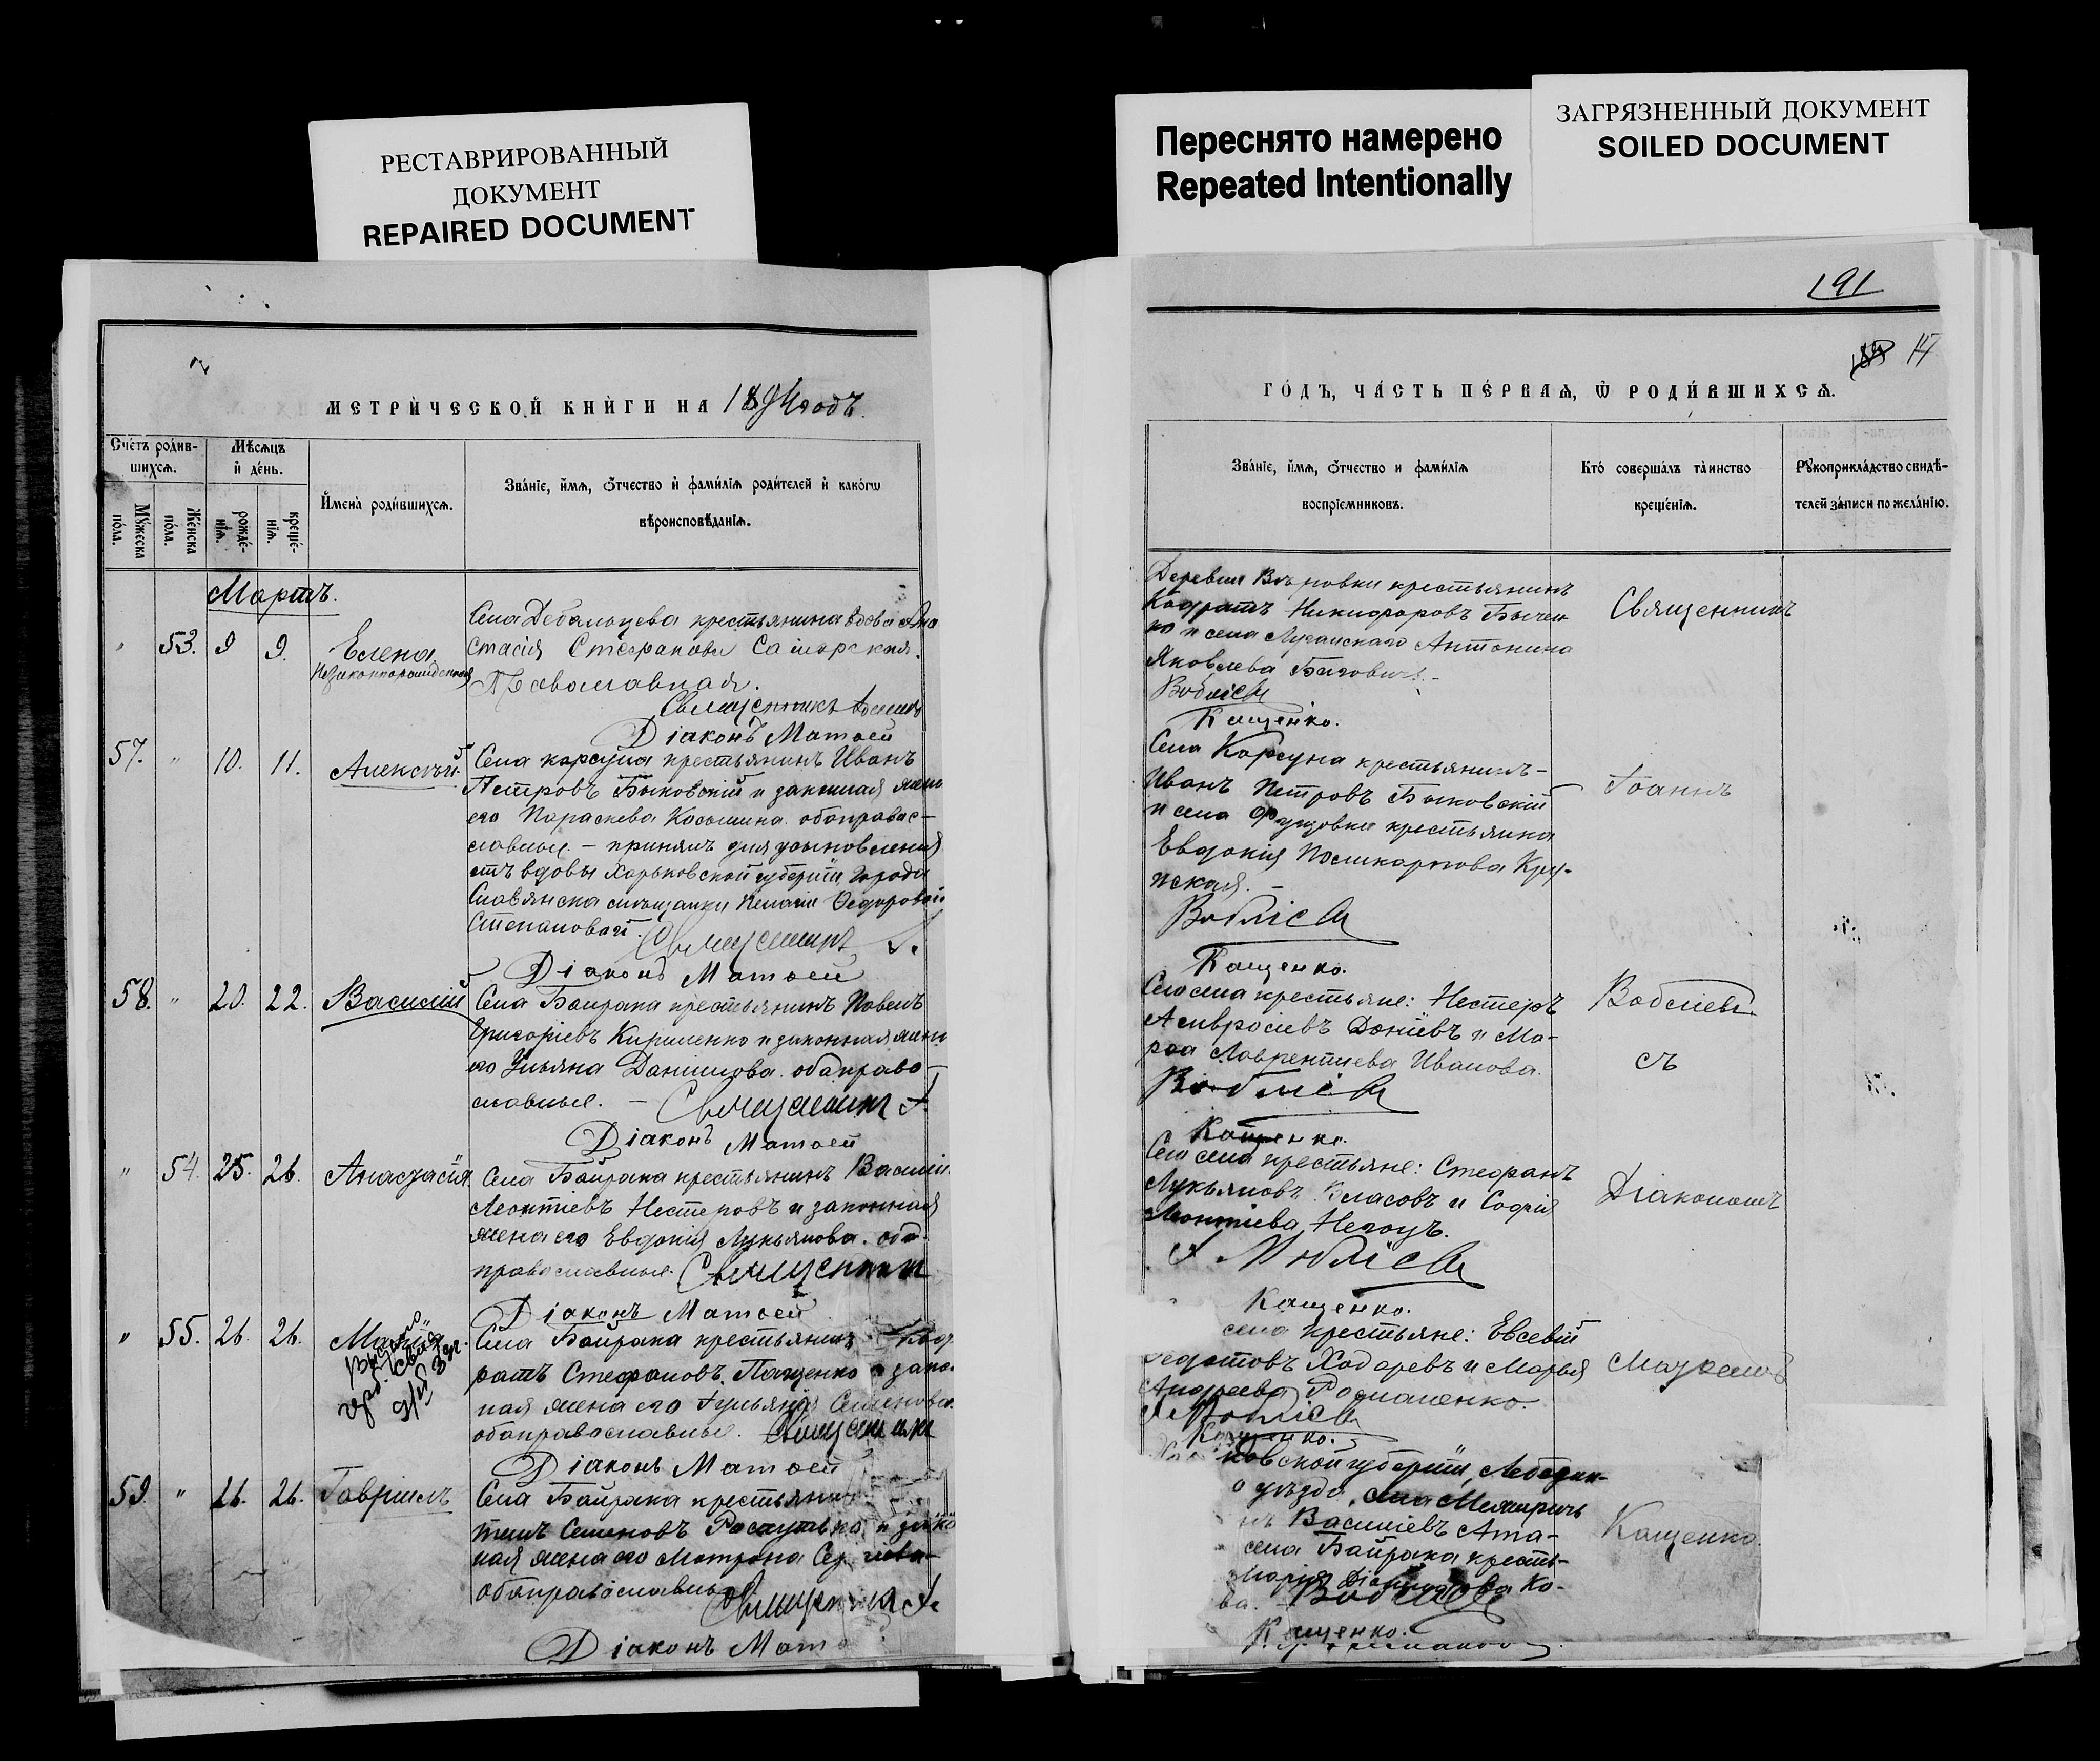 РЕСТАВРИРОВАННЫЙ
ДОКУМЕНТ
REPAIRED DOCUMENT
Переснято намерено
Repeated Intentionally
ЗАГРЯЗНЕННЫЙ ДОКУМЕНТ
SOILED DOCUMENT
МЕТРИ́ЧЕСКОЙ КНИ́ГИ НА 1894 годъ.
Сче́тъ роди́в-
шихсѧ.
Мѣ́сѧцъ
и҆ де́нь.
Му́жеска
по́ла.
Же́нска
по́ла.
рожде́-
нїѧ.
креще́-
нїѧ.
И҆мена̀ роди́вшихсѧ.
Зва́нїе, и҆́мѧ, ѻ҆́тчество и҆ фами́лїѧ роди́телей и҆ како́гѡ
вѣроисповѣ́данїѧ.
Мартъ.
53. 9 9. Елена
Незаконнорожденная
Села Дебальцева крестьянина вдова Ана
стасія Стефанова Саморская.
Православная.
Священникъ
Діаконъ Матѳей
57. " 10. 11. Алексѣй.
Села Корсуна крестьянинъ Иванъ
Петровъ Быковскій и законная жена
его Параскева Косьмина. оба правос-
лавные. – принялъ для усыновленія
отъ вдовы Харьковской губерніи, города
Славянска мѣщанки Пелагіи Ѳедоровой
Степановой. Священникъ
Діаконъ Матѳей
58. " 20. 22. Василій
Села Байрака крестьянинъ Павелъ
Григоріевъ Кириленко и законная жена
его Ульяна Даніилова. оба право-
славные. – Священникъ
Діаконъ Матѳей
" 54. 25. 26. Анастасія
Села Байрака крестьянинъ Василій
Леонтіевъ Нестеровъ и законная
жена его Евдокія Лукьянова. оба
православные. Священникъ
Діаконъ Матѳей
" 55. 26. 26. Марія
Села Байрака крестьянинъ
ратъ Стефановъ Пащенко и закон
ная жена его Ульянія Семенова.
оба православные. Священникъ
Діаконъ Матѳей
59. " 26. 26. Гавріилъ
Села Байрака крестьянинъ
Семеновъ и зако
ная жена его Матрона
оба православные
Священникъ
Діаконъ Матѳ
191
17
ГО́ДЪ, ЧА́СТЬ ПЕ́РВАѦ, Ѡ҆ РОДИ́ВШИХСѦ.
Зва́нїе, и҆́мѧ, ѻ҆́тчество и фами́лїѧ
воспрїе́мниковъ.
Кто̀ соверша́лъ та̀инство
креще́нїѧ.
Рꙋкоприкла́дство свидѣ́-
телей за́писи по жела́нїю.
Деревни крестьянинъ
Кодратъ Никифоровъ Бычен
ко и села Луганскаго Антонина
Яковлева
Воблiевъ
Кащенко.
Священникъ
Села Корсуна крестьянинъ –
Иванъ Петровъ Быковскій
и села крестьянка
Евдокія Поликарпова Кру-
пская. –
Воблiевъ
Кащенко.
Іоаннъ
Сего села крестьяне: Нестеръ
Амвросіевъ и Ма-
рѳа Лаврентіева Иванова.
Воблiевъ
Кащенко.
Воблiевъ
съ
Сего села крестьяне: Стефанъ
Лукьяновъ Власовъ и Софія
Леонтіева
Воблiевъ
Кащенко.
Діакономъ
села крестьяне: Евсевій
Ѳедотовъ Ходаревъ и Марья
Андреева Романенко.
Воблiевъ
Кащенко.
ковской губерніи, Лебедин-
о уѣзда, села Межиричь
Василіевъ Ата-
села Байрака кресть-
Марія Ко-
ва. Воблiевъ
Кащенко.
Кащенко.